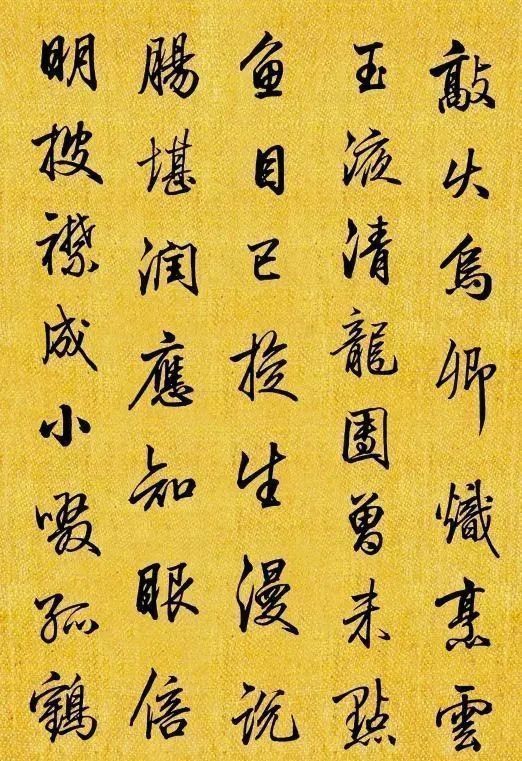 敲火烏卿熾烹雲
玉液清龍團曾未點
魚目已掟生漫說
腸堪润應知眼倍
明披襟成小啜孤鶴